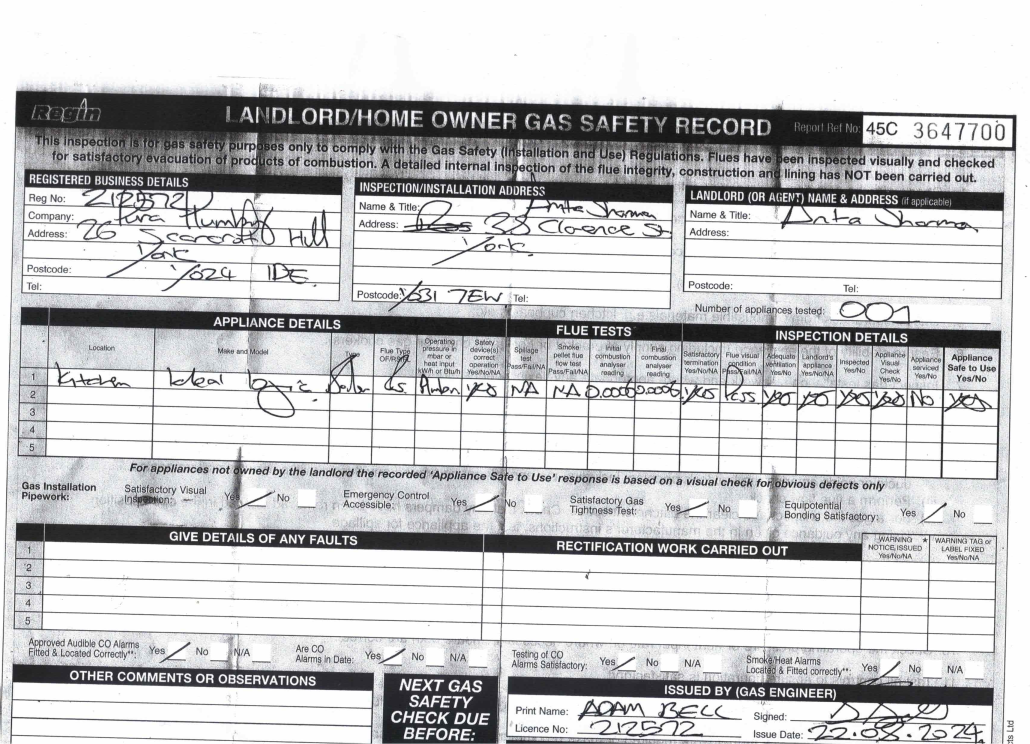 Regin
LANDLORD/HOME OWNER GAS SAFETY RECORD
Report Ref No: 45C 3647700
This inspection is for gas safety purposes only to comply with the Gas Safety (Installation and Use) Regulations. Flues have been inspected visually and checked
for satisfactory evacuation of products of combustion. A detailed internal inspection of the flue integrity, construction and lining has NOT been carried out.
REGISTERED BUSINESS DETAILS
Reg No: 212572
Company: Plumbing
Address: 26 Scarcroft Hill
York
Postcode: YO24 1DE.
Tel:
INSPECTION/INSTALLATION ADDRESS
Name & Title: Anita Sharman
Address: 33 Clarence St
York.
Postcode: YO31 7EW Tel:
LANDLORD (OR AGENT) NAME & ADDRESS (if applicable)
Name & Title: Anita Sharman
Address:
Postcode: Tel:
Number of appliances tested: 001
APPLIANCE DETAILS
FLUE TESTS
INSPECTION DETAILS
Location
Make and Model
Type
Flue Type OF/RS/FL
Operating pressure in mbar or heat input kW/h or Btu/h
Safety device(s) correct operation Yes/No/NA
Spillage test Pass/Fail/NA
Smoke pellet flue flow test Pass/Fail/NA
Initial combustion analyser reading
Final combustion analyser reading
Satisfactory termination Yes/No/NA
Flue visual condition Pass/Fail/NA
Adequate ventilation Yes/No
Landlord's appliance Yes/No/NA
Inspected Yes/No
Appliance Visual Check Yes/No
Appliance serviced Yes/No
Appliance Safe to Use Yes/No
1 Kitchen Ideal logic Boiler RS Yes NA NA 0.0006 0.0006 Yes Pass Yes Yes Yes Yes No Yes
2
3
4
5
For appliances not owned by the landlord the recorded 'Appliance Safe to Use' response is based on a visual check for obvious defects only
Gas Installation Pipework:
Satisfactory Visual Inspection: Yes No
Emergency Control Accessible: Yes No
Satisfactory Gas Tightness Test: Yes No
Equipotential Bonding Satisfactory: Yes No
GIVE DETAILS OF ANY FAULTS
RECTIFICATION WORK CARRIED OUT
WARNING * NOTICE ISSUED Yes/No/NA
WARNING TAG or LABEL FIXED Yes/No/NA
1
2
3
4
5
Approved Audible CO Alarms Fitted & Located Correctly**: Yes No N/A
Are CO Alarms in Date: Yes No N/A
Testing of CO Alarms Satisfactory: Yes No N/A
Smoke/Heat Alarms Located & Fitted correctly**: Yes No N/A
OTHER COMMENTS OR OBSERVATIONS
NEXT GAS
SAFETY
CHECK DUE
BEFORE:
ISSUED BY (GAS ENGINEER)
Print Name: ADAM BELL Signed:
Licence No: 212572 Issue Date: 22.08.2024